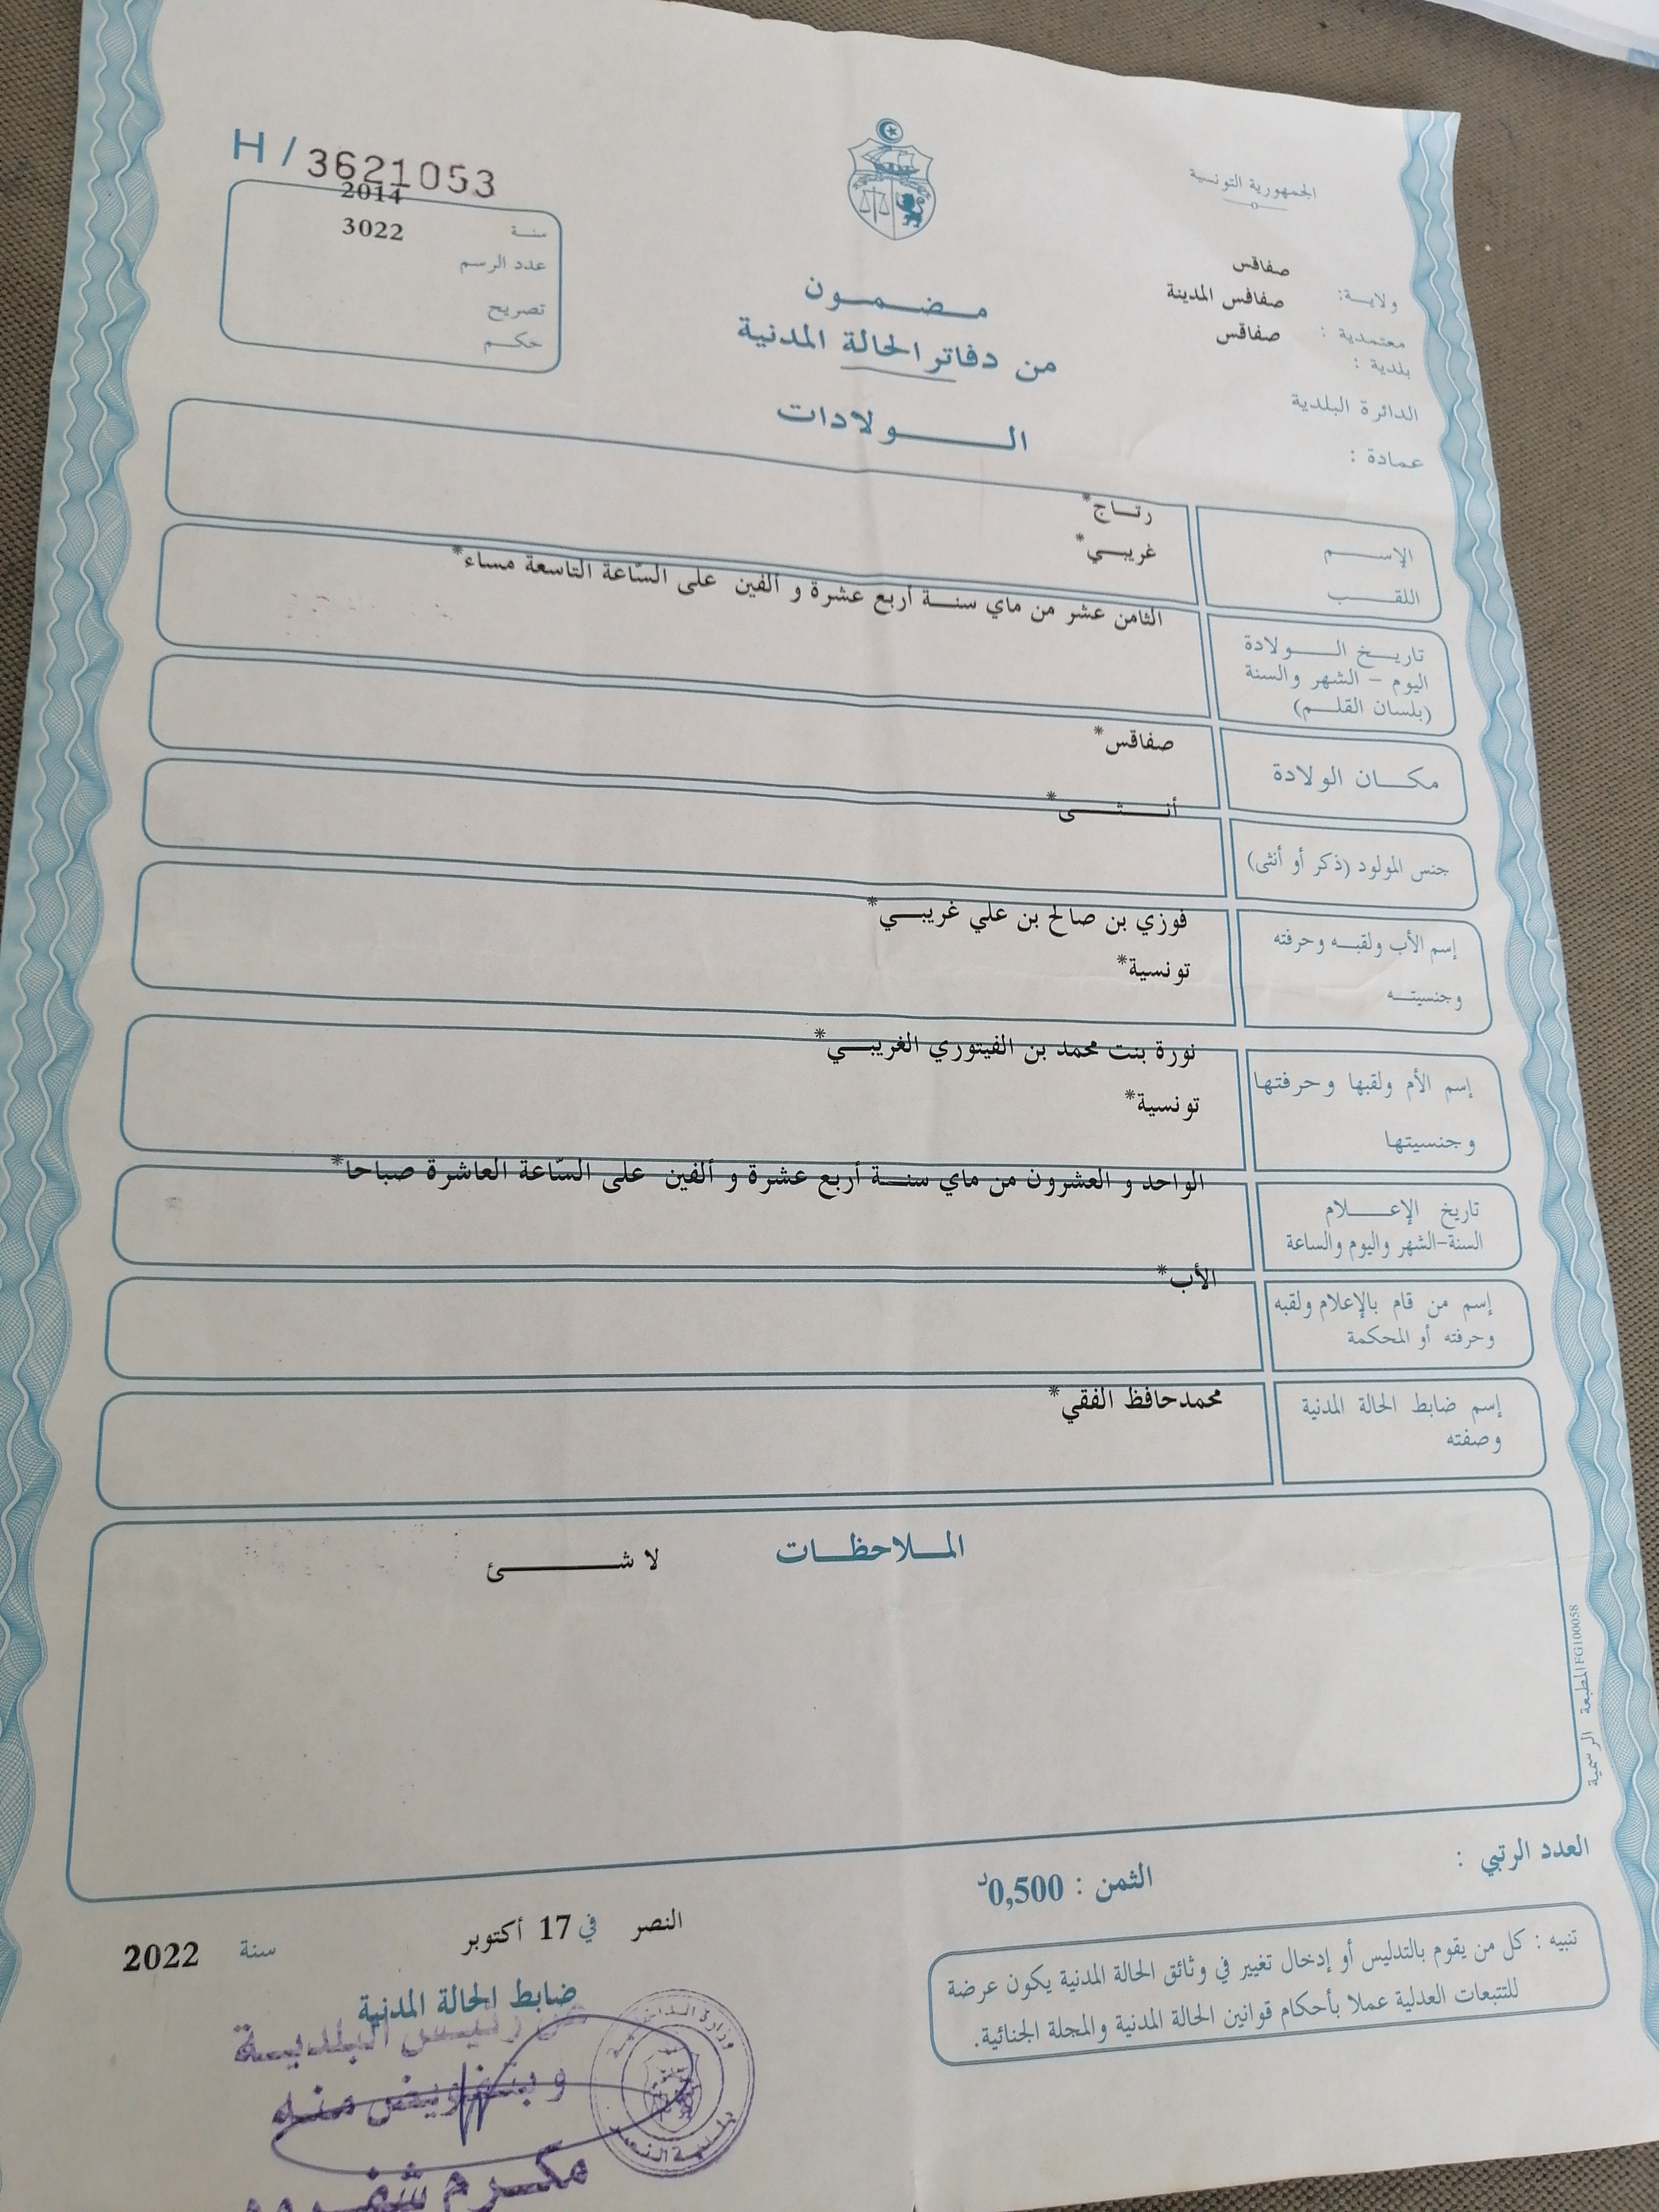 H / 3621053
الجمهورية التونسية
2014
سنة
3022
عدد الرسم
تصريح
حكم
صفاقس
ولاية:
صفاقس المدينة
معتمدية :
صفاقس
بلدية :
الدائرة البلدية
عمادة :
مضمون
من دفاتر الحالة المدنية
الولادات
رتاج*
الإسم
غريبي*
اللقب
الثامن عشر من ماي سنة أربع عشرة و ألفين على السّاعة التاسعة مساء*
تاريخ الولادة
اليوم - الشهر والسنة
(بلسان القلم)
صفاقس*
مكان الولادة
أنثى*
جنس المولود (ذكر أو أنثى)
فوزي بن صالح بن علي غريبي*
إسم الأب ولقبه وحرفته
تونسية*
وجنسيته
نورة بنت محمد بن الفيتوري الغريبي*
إسم الأم ولقبها وحرفتها
تونسية*
وجنسيتها
الواحد و العشرون من ماي سنة أربع عشرة و ألفين على السّاعة العاشرة صباحا*
تاريخ الإعلام
السنة-الشهر واليوم والساعة
الأب*
إسم من قام بالإعلام ولقبه
وحرفته أو المحكمة
محمدحافظ الفقي*
إسم ضابط الحالة المدنية
وصفته
الملاحظات
لا شئ
المطبعة الرسمية FG100058
العدد الرتبي :
الثمن : 0,500د
تنبيه : كل من يقوم بالتدليس أو إدخال تغيير في وثائق الحالة المدنية يكون عرضة
للتتبعات العدلية عملا بأحكام قوانين الحالة المدنية والمجلة الجنائية.
النصر في 17 أكتوبر سنة 2022
ضابط الحالة المدنية
عن رئيس البلدية
وبتفويض منه
مكرم
وزارة الداخلية
بلدية النصر